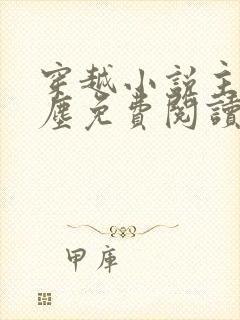 穿越小说主
塵免費閱讀
甲庫